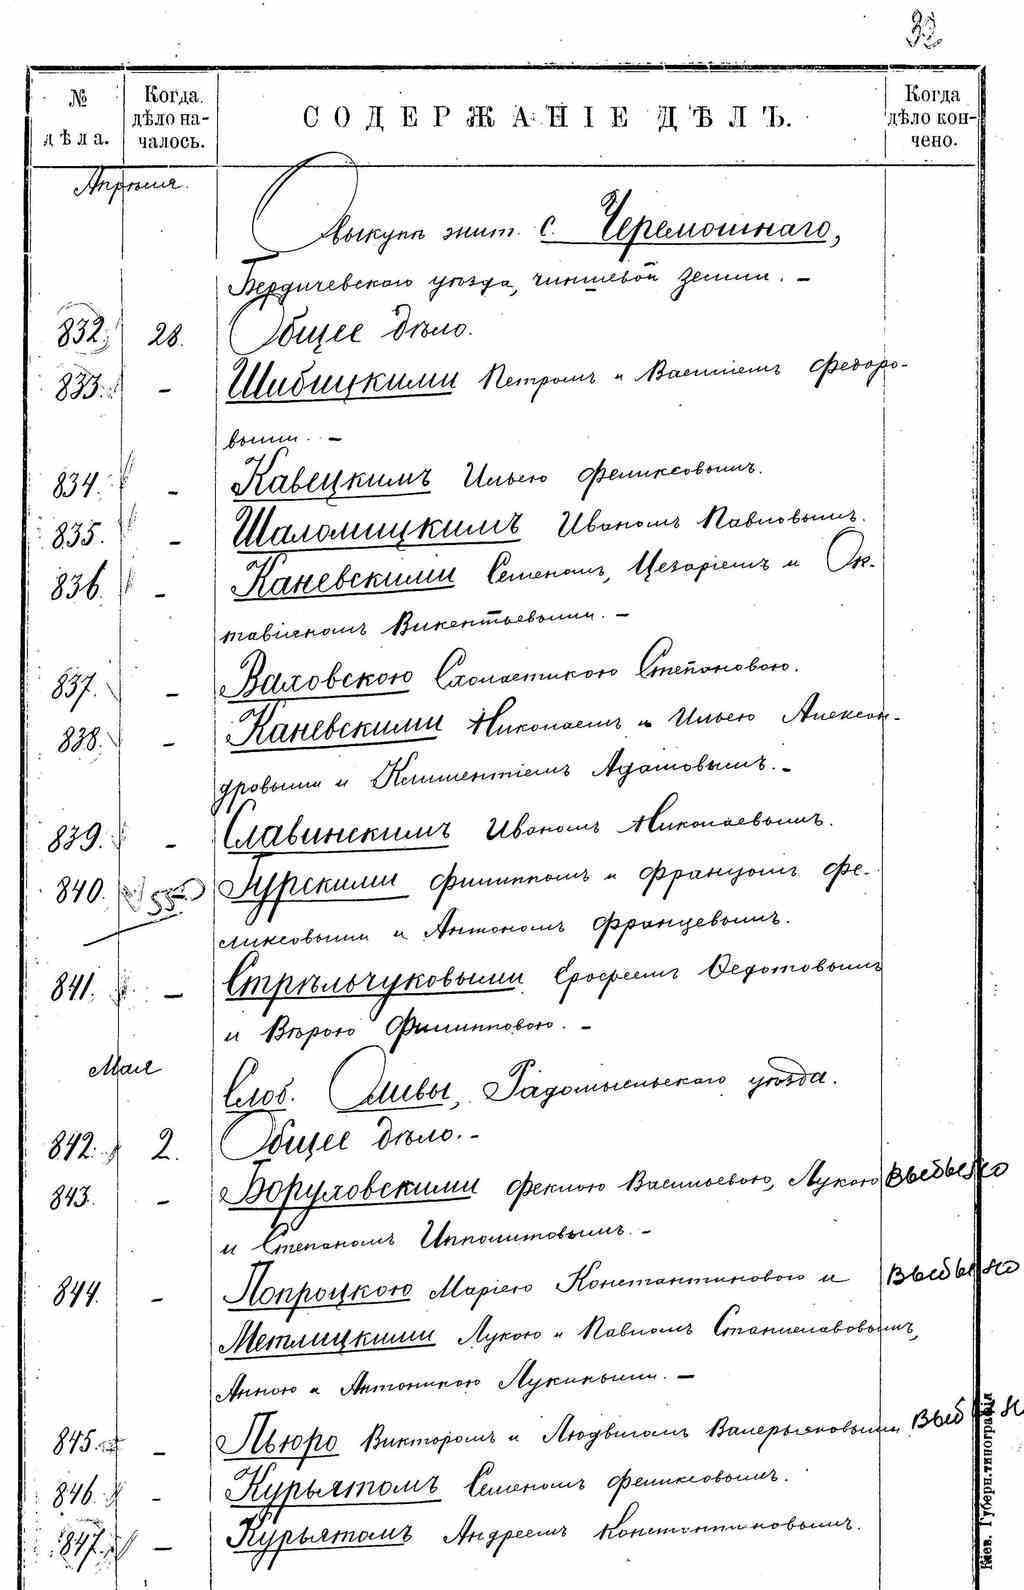 32
№ дѣла.
Когда дѣло началось.
СОДЕРЖАНІЕ ДѢЛЪ.
Когда дѣло кончено.
Апрѣля.
О выкупѣ жит. с. Черемошнаго,
Бердичевскаго уѣзда, чиншевой земли. –
832. 28. Общее дѣло.
833. – Шибицкими Петромъ и Василіемъ Федоро-
выми. –
834. – Кавецкимъ Ильею Феликсовымъ.
835. – Шаломицкимъ Иваномъ Павловымъ.
836. – Каневскими Семеномъ, Цезаріемъ и Ок-
тавіаномъ Викентьевыми. –
837. – Ваховскою Схоластикою Степановою.
838. – Каневскими Николаемъ и Ильею Алексан-
дровыми и Климентіемъ Адамовымъ. –
839. – Славинскимъ Иваномъ Николаевымъ.
840. 55. Гурскими Филиппомъ и Францомъ Фе-
ликсовыми и Антономъ Францевымъ.
841. – Стрѣльчуковыми Ерофеемъ Федотовымъ
и Вѣрою Филипповою. –
Мая
Слоб. Оливы, Радомысльскаго уѣзда.
842. 2. Общее дѣло. –
843. – Боруховскими Феклою Васильевою, Лукою Выбыло
и Степаномъ Ипполитовымъ. –
844. – Попроцкою Маріею Константиновою и Выбыло
Метлицкими Лукою и Павломъ Станиславовымъ,
Анною и Антониною Лукиными. –
845. – Пьюро Викторомъ и Людвигомъ Валерьяновыми
846. – Курьятомъ Семеномъ Феликсовымъ.
847. – Курьятомъ Андреемъ Константиновымъ.
Кіев. Губерн. типографія